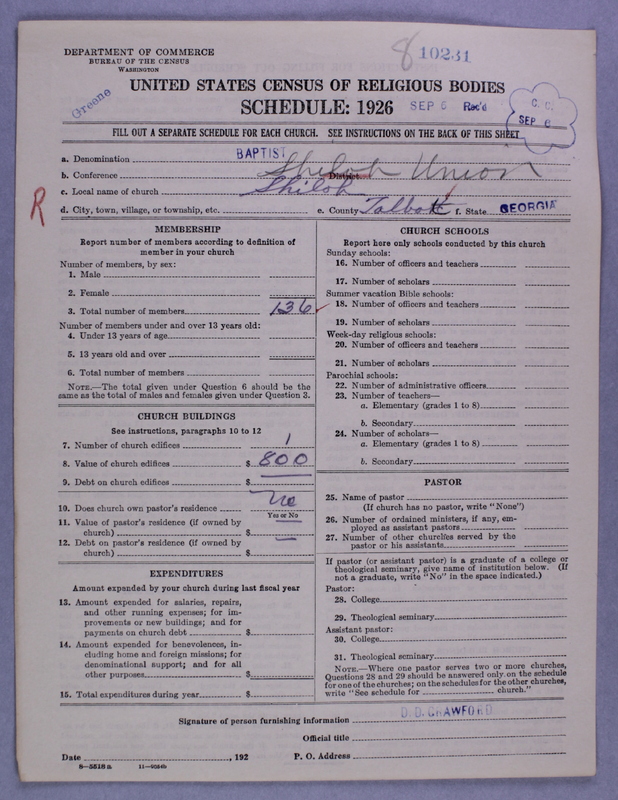 DEPARTMENT OF COMMERCE
BUREAU OF THE CENSUS
WASHINGTON
8 10231
Greene
UNITED STATES CENSUS OF RELIGIOUS BODIES
SCHEDULE: 1926
SEP 6 Rec'd
C. C.
SEP 6
FILL OUT A SEPARATE SCHEDULE FOR EACH CHURCH. SEE INSTRUCTIONS ON THE BACK OF THIS SHEET
a. Denomination BAPTIST
b. Conference Shiloh Union District
c. Local name of church Shiloh
R
d. City, town, village, or township, etc. e. County Talbot f. State GEORGIA
MEMBERSHIP
Report number of members according to definition of member in your church
Number of members, by sex:
1. Male
2. Female
3. Total number of members 136
Number of members under and over 13 years old:
4. Under 13 years of age
5. 13 years old and over
6. Total number of members
NOTE.—The total given under Question 6 should be the
same as the total of males and females given under Question 3.
CHURCH BUILDINGS
See instructions, paragraphs 10 to 12
7. Number of church edifices 1
8. Value of church edifices $ 800
9. Debt on church edifices $
10. Does church own pastor's residence no
Yes or No
11. Value of pastor's residence (if owned by
church) $ —
12. Debt on pastor's residence (if owned by
church) $ —
EXPENDITURES
Amount expended by your church during last fiscal year
13. Amount expended for salaries, repairs,
and other running expenses; for im-
provements or new buildings; and for
payments on church debt $
14. Amount expended for benevolences, in-
cluding home and foreign missions; for
denominational support; and for all
other purposes $
15. Total expenditures during year $
CHURCH SCHOOLS
Report here only schools conducted by this church
Sunday schools:
16. Number of officers and teachers
17. Number of scholars
Summer vacation Bible schools:
18. Number of officers and teachers
19. Number of scholars
Week-day religious schools:
20. Number of officers and teachers
21. Number of scholars
Parochial schools:
22. Number of administrative officers
23. Number of teachers—
a. Elementary (grades 1 to 8)
b. Secondary
24. Number of scholars—
a. Elementary (grades 1 to 8)
b. Secondary
PASTOR
25. Name of pastor
(If church has no pastor, write "None")
26. Number of ordained ministers, if any, em-
ployed as assistant pastors
27. Number of other churches served by the
pastor or his assistants
If pastor (or assistant pastor) is a graduate of a college or
theological seminary, give name of institution below. (If
not a graduate, write "No" in the space indicated.)
Pastor:
28. College
29. Theological seminary
Assistant pastor:
30. College
31. Theological seminary
NOTE.—Where one pastor serves two or more churches,
Questions 28 and 29 should be answered only on the schedule
for one of the churches; on the schedules for the other churches,
write "See schedule for church."
Signature of person furnishing information D. D. CRAWFORD
Official title
Date , 192 P. O. Address
8—5518a 11—9384b